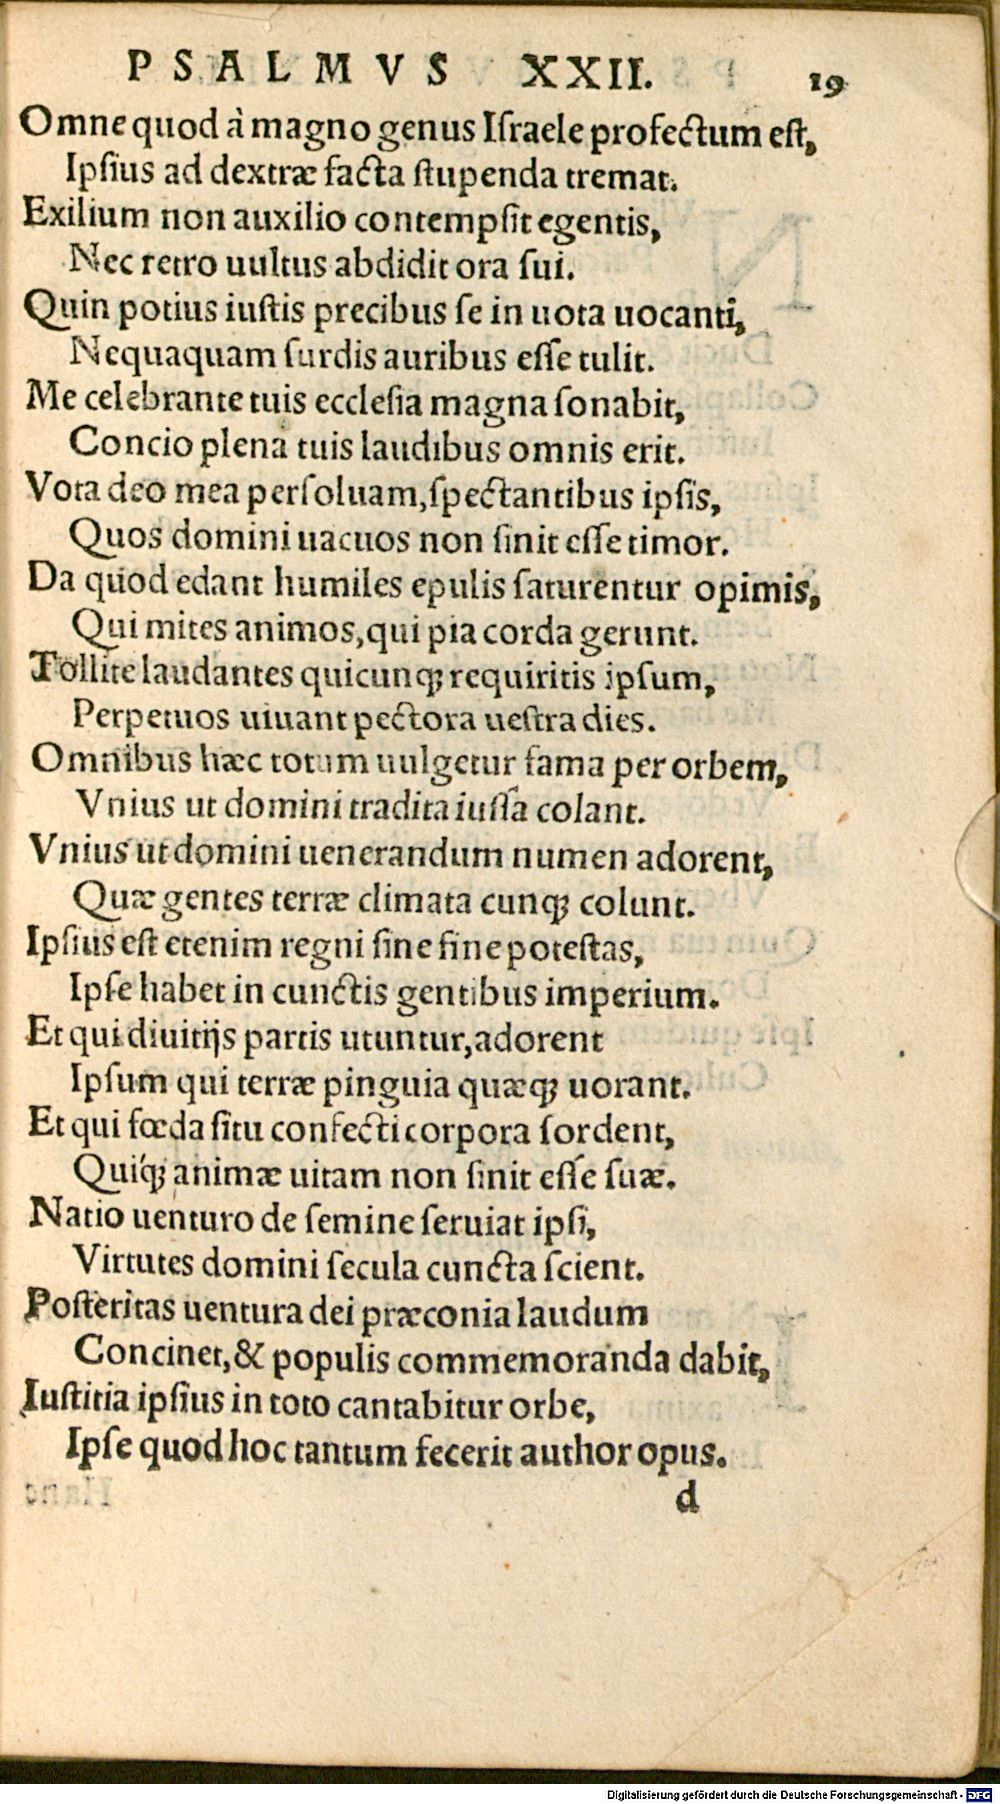 PSALMVS XXII. 19
Omne quod à magno genus Iſraele profectum eſt,
Ipſius ad dextræ facta ſtupenda tremat.
Exilium non auxilio contempſit egentis,
Nec retro uultus abdidit ora ſui.
Quin potius iuſtis precibus ſe in uota uocanti,
Nequaquam ſurdis auribus eſſe tulit.
Me celebrante tuis eccleſia magna ſonabit,
Concio plena tuis laudibus omnis erit.
Vota deo mea perſoluam, ſpectantibus ipſis,
Quos domini uacuos non ſinit eſſe timor.
Da quod edant humiles epulis ſaturentur opimis,
Qui mites animos, qui pia corda gerunt.
Tollite laudantes quicunq; requiritis ipſum,
Perpetuos uiuant pectora ueſtra dies.
Omnibus hæc totum uulgetur fama per orbem,
Vnius ut domini tradita iuſſa colant.
Vnius ut domini uenerandum numen adorent,
Quæ gentes terræ climata cunq; colunt.
Ipſius eſt etenim regni ſine fine poteſtas,
Ipſe habet in cunctis gentibus imperium.
Et qui diuitijs partis utuntur, adorent
Ipſum qui terræ pinguia quæq; uorant.
Et qui fœda ſitu confecti corpora ſordent,
Quiq́; animæ uitam non ſinit eſſe ſuæ.
Natio uenturo de ſemine ſeruiat ipſi,
Virtutes domini ſecula cuncta ſcient.
Poſteritas uentura dei præconia laudum
Concinet, & populis commemoranda dabit,
Iuſtitia ipſius in toto cantabitur orbe,
Ipſe quod hoc tantum fecerit author opus.
d
Digitalisierung gefördert durch die Deutsche Forschungsgemeinschaft - DFG